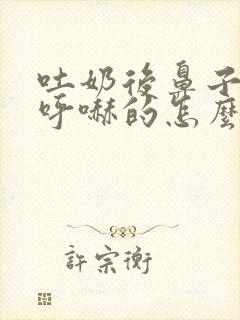 吐奶後鼻子
呼嚇的怎麼
許宗衡